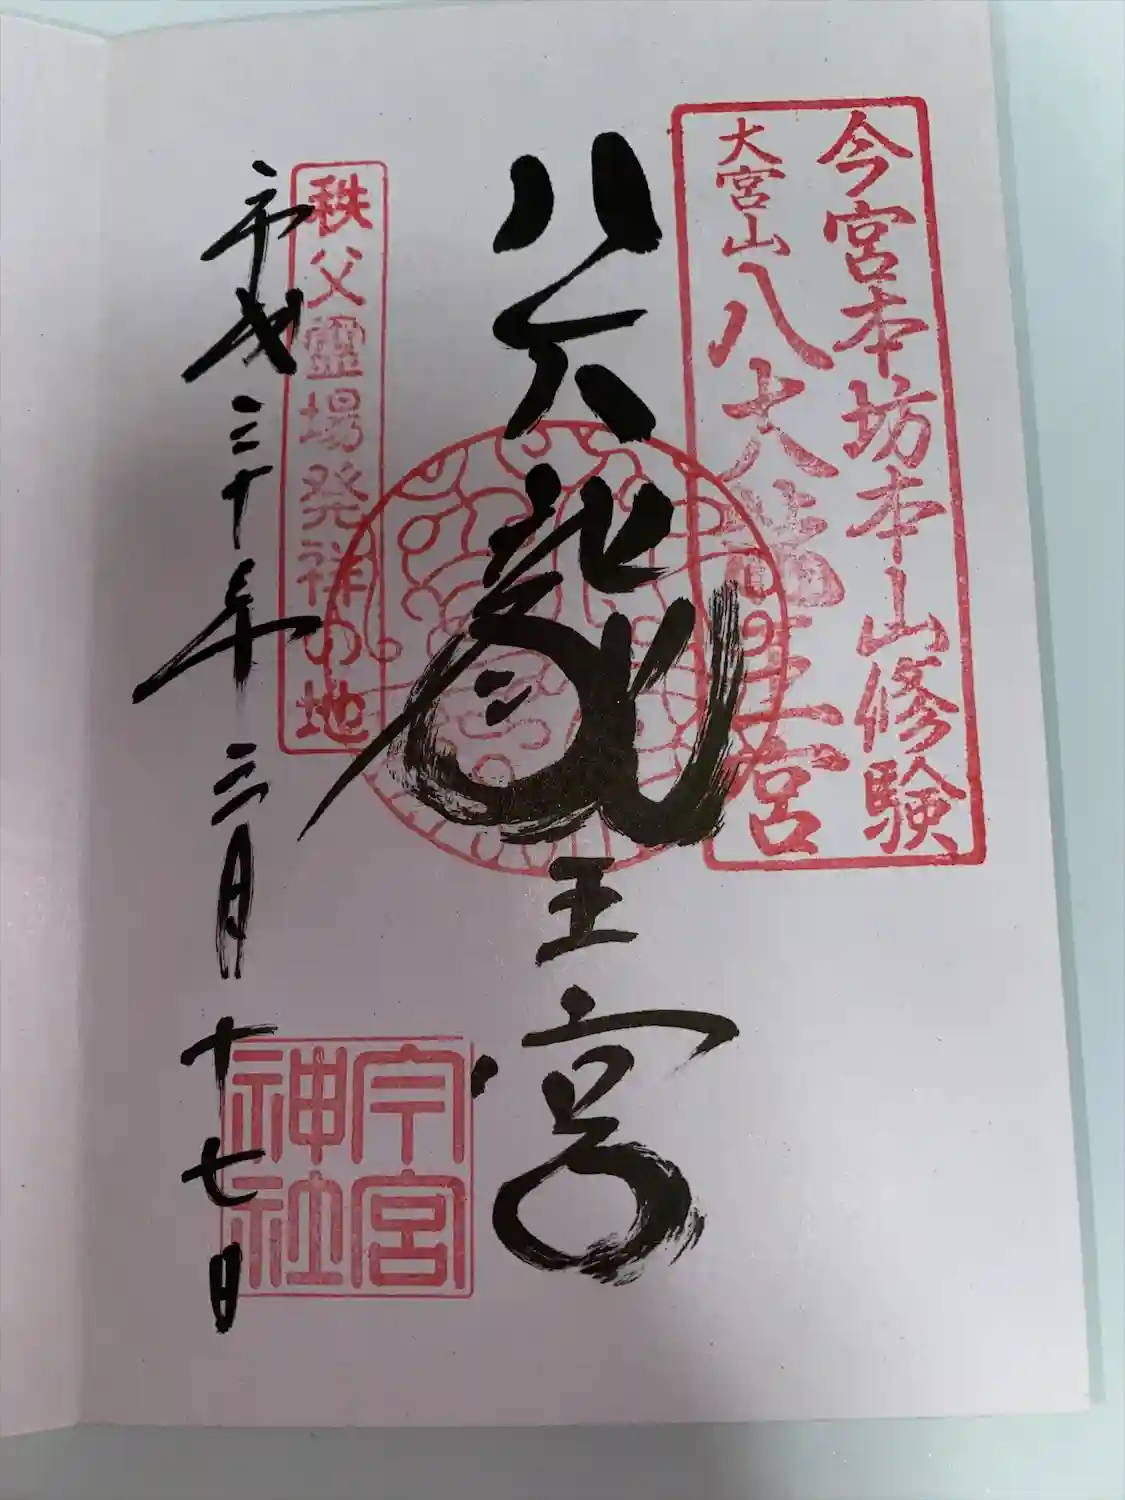 今宮本坊本山修験
大宮山八大龍王宮
八大龍王宮
秩父霊場発祥の地
今宮
神社
平成三十年三月十七日